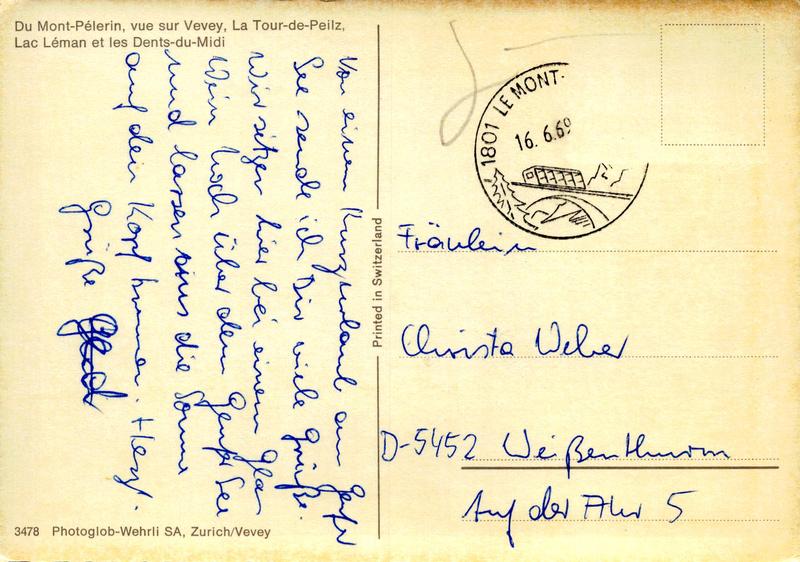 Du Mont-Pélerin, vue sur Vevey, La Tour-de-Peilz,
Lac Léman et les Dents-du-Midi
Von einem Kurzurlaub am Genfer
See sende ich Dir viele Grüße.
Wir sitzen hier bei einem Glas
Wein hoch über dem Genfer See
und lassen uns die Sonne
auf den Kopf brennen. Herzl.
Grüße
3478 Photoglob-Wehrli SA, Zurich/Vevey
Printed in Switzerland
1801 LE MONT-
16. 6.69
Fräulein
Christa Weber
D-5452 Weißenthurm
Auf der Ahr 5